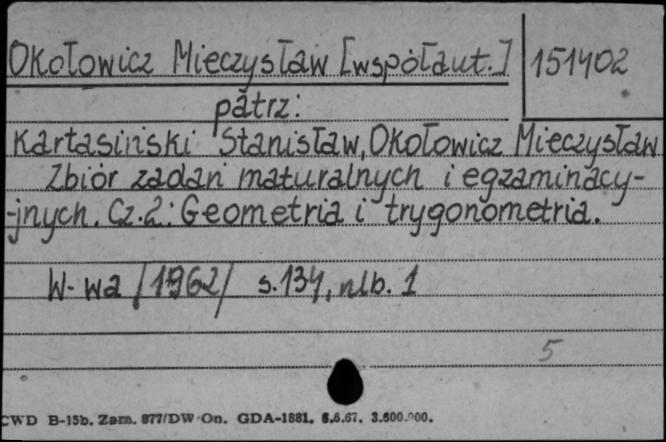 Okołowicz Mieczysław [współaut.] 151402
patrz:
Kartasiński Stanisław, Okołowicz Mieczysław
Zbiór zadań maturalnych i egzaminacy-
-jnych. Cz. 2: Geometria i trygonometria.
W-wa /1962/ s. 134, nlb. 1
5
CWD B-15b. Zam. 877/DW On. GDA-1881. 6.6.67. 3.600.000.